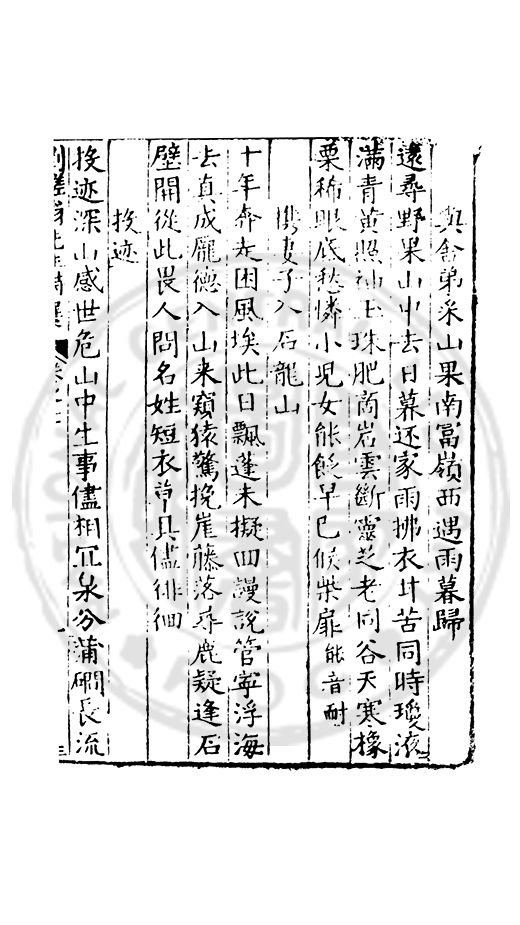 與舍弟采山果南冨嶺西遇雨暮歸
遠尋野果山中去日暮还家雨拂衣甘苦同時瓊液
滿青黄照袖玉珠肥商岩雲斷靈芝老同谷天寒橡
栗稀眼底愁憐小児女能飢早已候柴扉能音耐
携妻子入石龍山
十年奔走困風埃此日飄蓬未擬囬謾說管寜浮海
去真成龐德入山来窺猿驚挽崖藤落尋鹿疑逢石
壁開從此畏人問名姓短衣草具儘徘徊
投迹
投迹深山感世危山中生事儘相冝泉分蒲磵長流